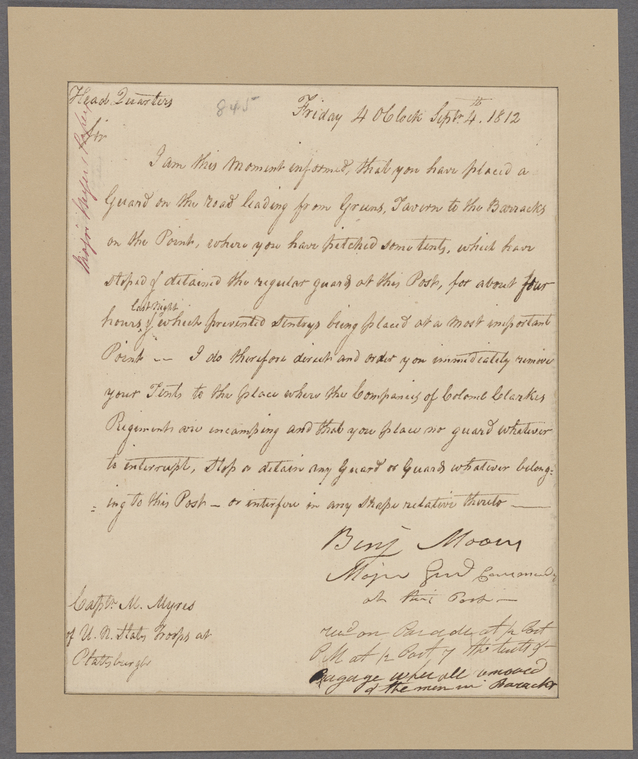 Head Quarters
845
Friday 4 OClock Septr. 4th. 1812
Sir
I am this Moment informed, that you have placed a
Guard on the road leading from Greens, Tavern to the Barracks
on the Point, where you have pitched some tents, which have
stoped & detained the regular guard at this Post, for about four
last Night
hours, & which prevented Sentrys being placed at a most important
Point — I do therefore direct and order you immediately remove
your Tents to the place where the Companies of Colonl Clarkes
Regiments are encamping and that you place no guard whatever
to interrupt, stop or detain any Guard or Guards whatever belong:
:ing to this Post — or interfere in any Shape relative thereto —
Benj Mooers
Major Genl Command
at this Post —
Captn. M. Myres
of U. States Troops at
Plattsburgh
recd on Parade at ½ Past
PM at ½ Past 7 the tents &
Bagage where all removed
& the men in Baracks